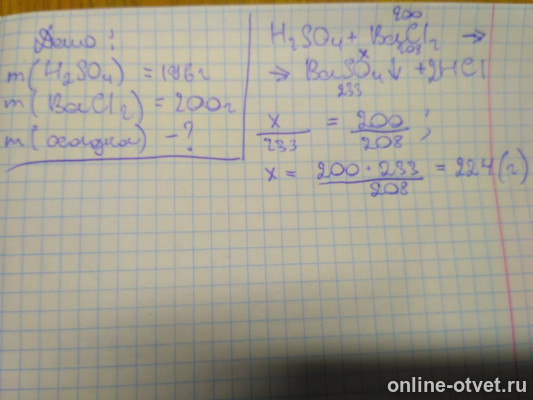 Дано:
m(H₂SO₄) = 196г
m(BaCl₂) = 200г
m(осадка) - ?
200
H₂SO₄ + BaCl₂ →
208
x
→ BaSO₄↓ + 2HCl
233
x/233 = 200/208 ;
x = 200 · 233/208 = 224(г)
online-otvet.ru